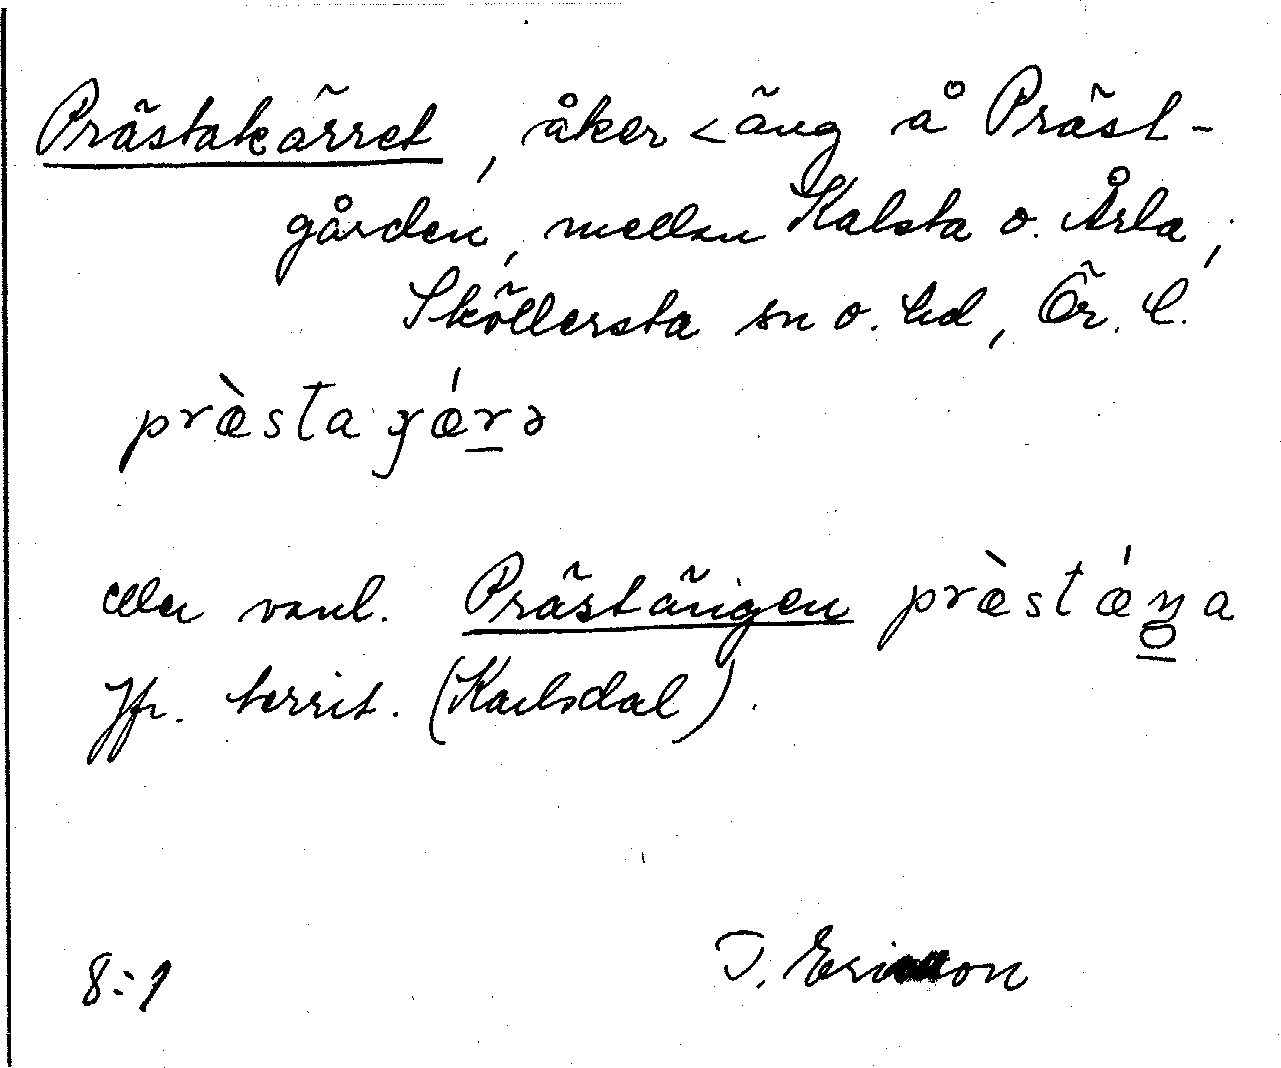 Prästakärret, åker < äng å Präst-
gården, mellan Kalsta o. Årla,
Sköllersta sn o. hd, Ör. l.
præ̀sta
eller vanl. Prästängen præ̀stǽŋa
Jfr. territ. (Karlsdal).
8:1 I. Ericsson